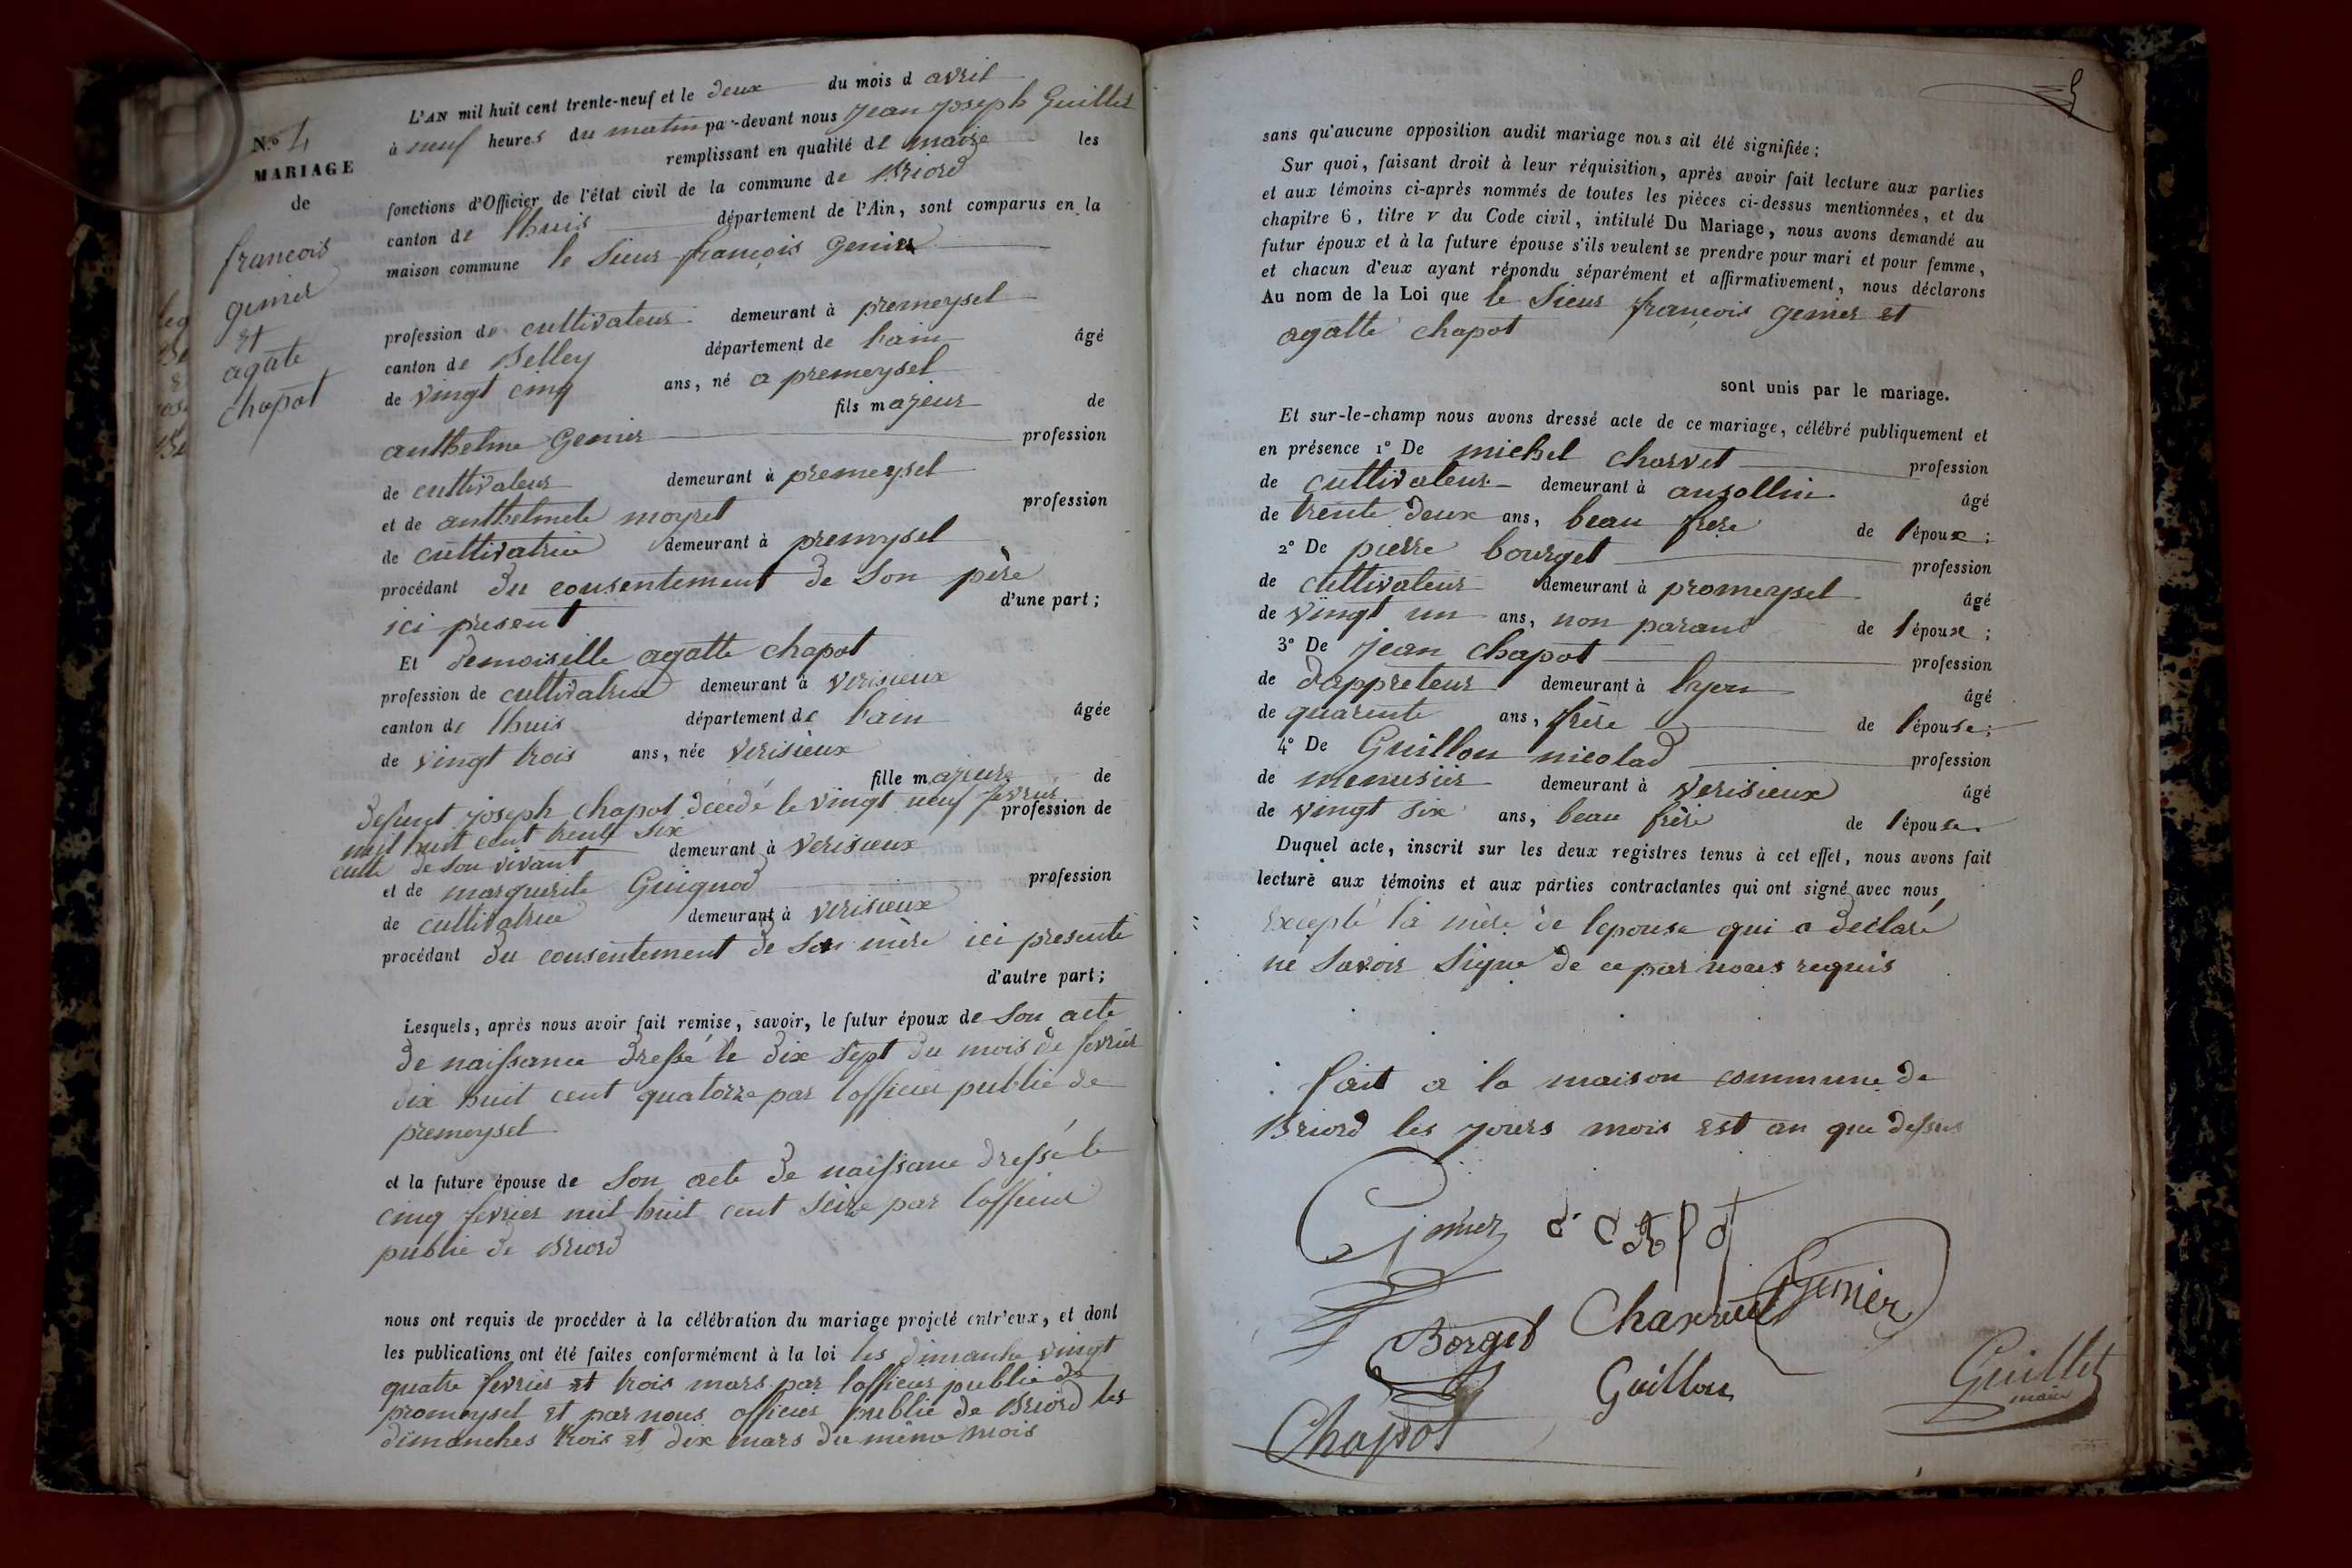 N.º 4
MARIAGE
de
francois
genier
et
agate
chapot
L'AN mil huit cent trente-neuf et le deux du mois d avril
à neuf heures du matin par-devant nous jean joseph Guillet
remplissant en qualité de maire les
fonctions d'Officier de l'état civil de la commune de Briord
canton de lhuis département de l'Ain, sont comparus en la
maison commune le Sieur françois Genier
profession de cultivateur demeurant à premeysel
canton de Belley département de l'ain âgé
de vingt cinq ans, né a premeysel
fils majeur de
anthelme Genier profession
de cultivateur demeurant à premeysel
et de anthelmete moyret profession
de cultivatrice demeurant à premysel
procédant du consentement de Son père
ici present d'une part;
Et demoiselle agatte chapot
profession de cultivatrice demeurant à verisieux
canton de lhuis département de l'ain âgée
de vingt trois ans, née verisieux
fille majeure de
defunt joseph chapot décedé le vingt neuf fevrier
mil huit cent trente six profession de
cultr de son vivant demeurant à verisieux
et de marguerite Guignod profession
de cultivatrice demeurant à verisieux
procédant du consentement de Sa mère ici presente
d'autre part;
Lesquels, après nous avoir fait remise, savoir, le futur époux de Son acte
de naissance dressé le dix sept du mois de fevrier
dix huit cent quatorze par l'officier public de
premeysel
et la future épouse de Son acte de naissance dressé le
cinq fevrier mil huit cent seize par l'officier
public de Briord
nous ont requis de procéder à la célébration du mariage projeté entr'eux, et dont
les publications ont été faites conformément à la loi les dimanche vingt
quatre fevrier et trois mars par l'officier public de
promeysel et par nous officier public de Briord les
dimanches trois et dix mars du meme mois
sans qu'aucune opposition audit mariage nous ait été signifiée;
Sur quoi, faisant droit à leur réquisition, après avoir fait lecture aux parties
et aux témoins ci-après nommés de toutes les pièces ci-dessus mentionnées, et du
chapitre 6, titre v du Code civil, intitulé Du Mariage, nous avons demandé au
futur époux et à la future épouse s'ils veulent se prendre pour mari et pour femme,
et chacun d'eux ayant répondu séparément et affirmativement, nous déclarons
Au nom de la Loi que le Sieur françois genier et
agatte chapot
sont unis par le mariage.
Et sur-le-champ nous avons dressé acte de ce mariage, célébré publiquement et
en présence 1º De michel charvet profession
de cultivateur demeurant à ansolin âgé
de trente deux ans, beau frere de l'époux;
2º De pierre bourget profession
de cultivateur demeurant à promeysel âgé
de vingt un ans, non parand de l'époux;
3º De jean chapot profession
de dappreteur demeurant à lyon âgé
de quarente ans, frère de l'épouse;
4º De Guillon nicolad profession
de menusier demeurant à verisieux âgé
de vingt six ans, beau frère de l'épouse.
Duquel acte, inscrit sur les deux registres tenus à cet effet, nous avons fait
lecture aux témoins et aux parties contractantes qui ont signé avec nous,
Excepté la mère de lepouse qui a declaré
ne savoir Signe de ce par nous requis
fait a la maison commune de
Briord les jours mois est an que dessus
Genier
Borget Charvet Genier
Guillon Guillet
maire
Chapot